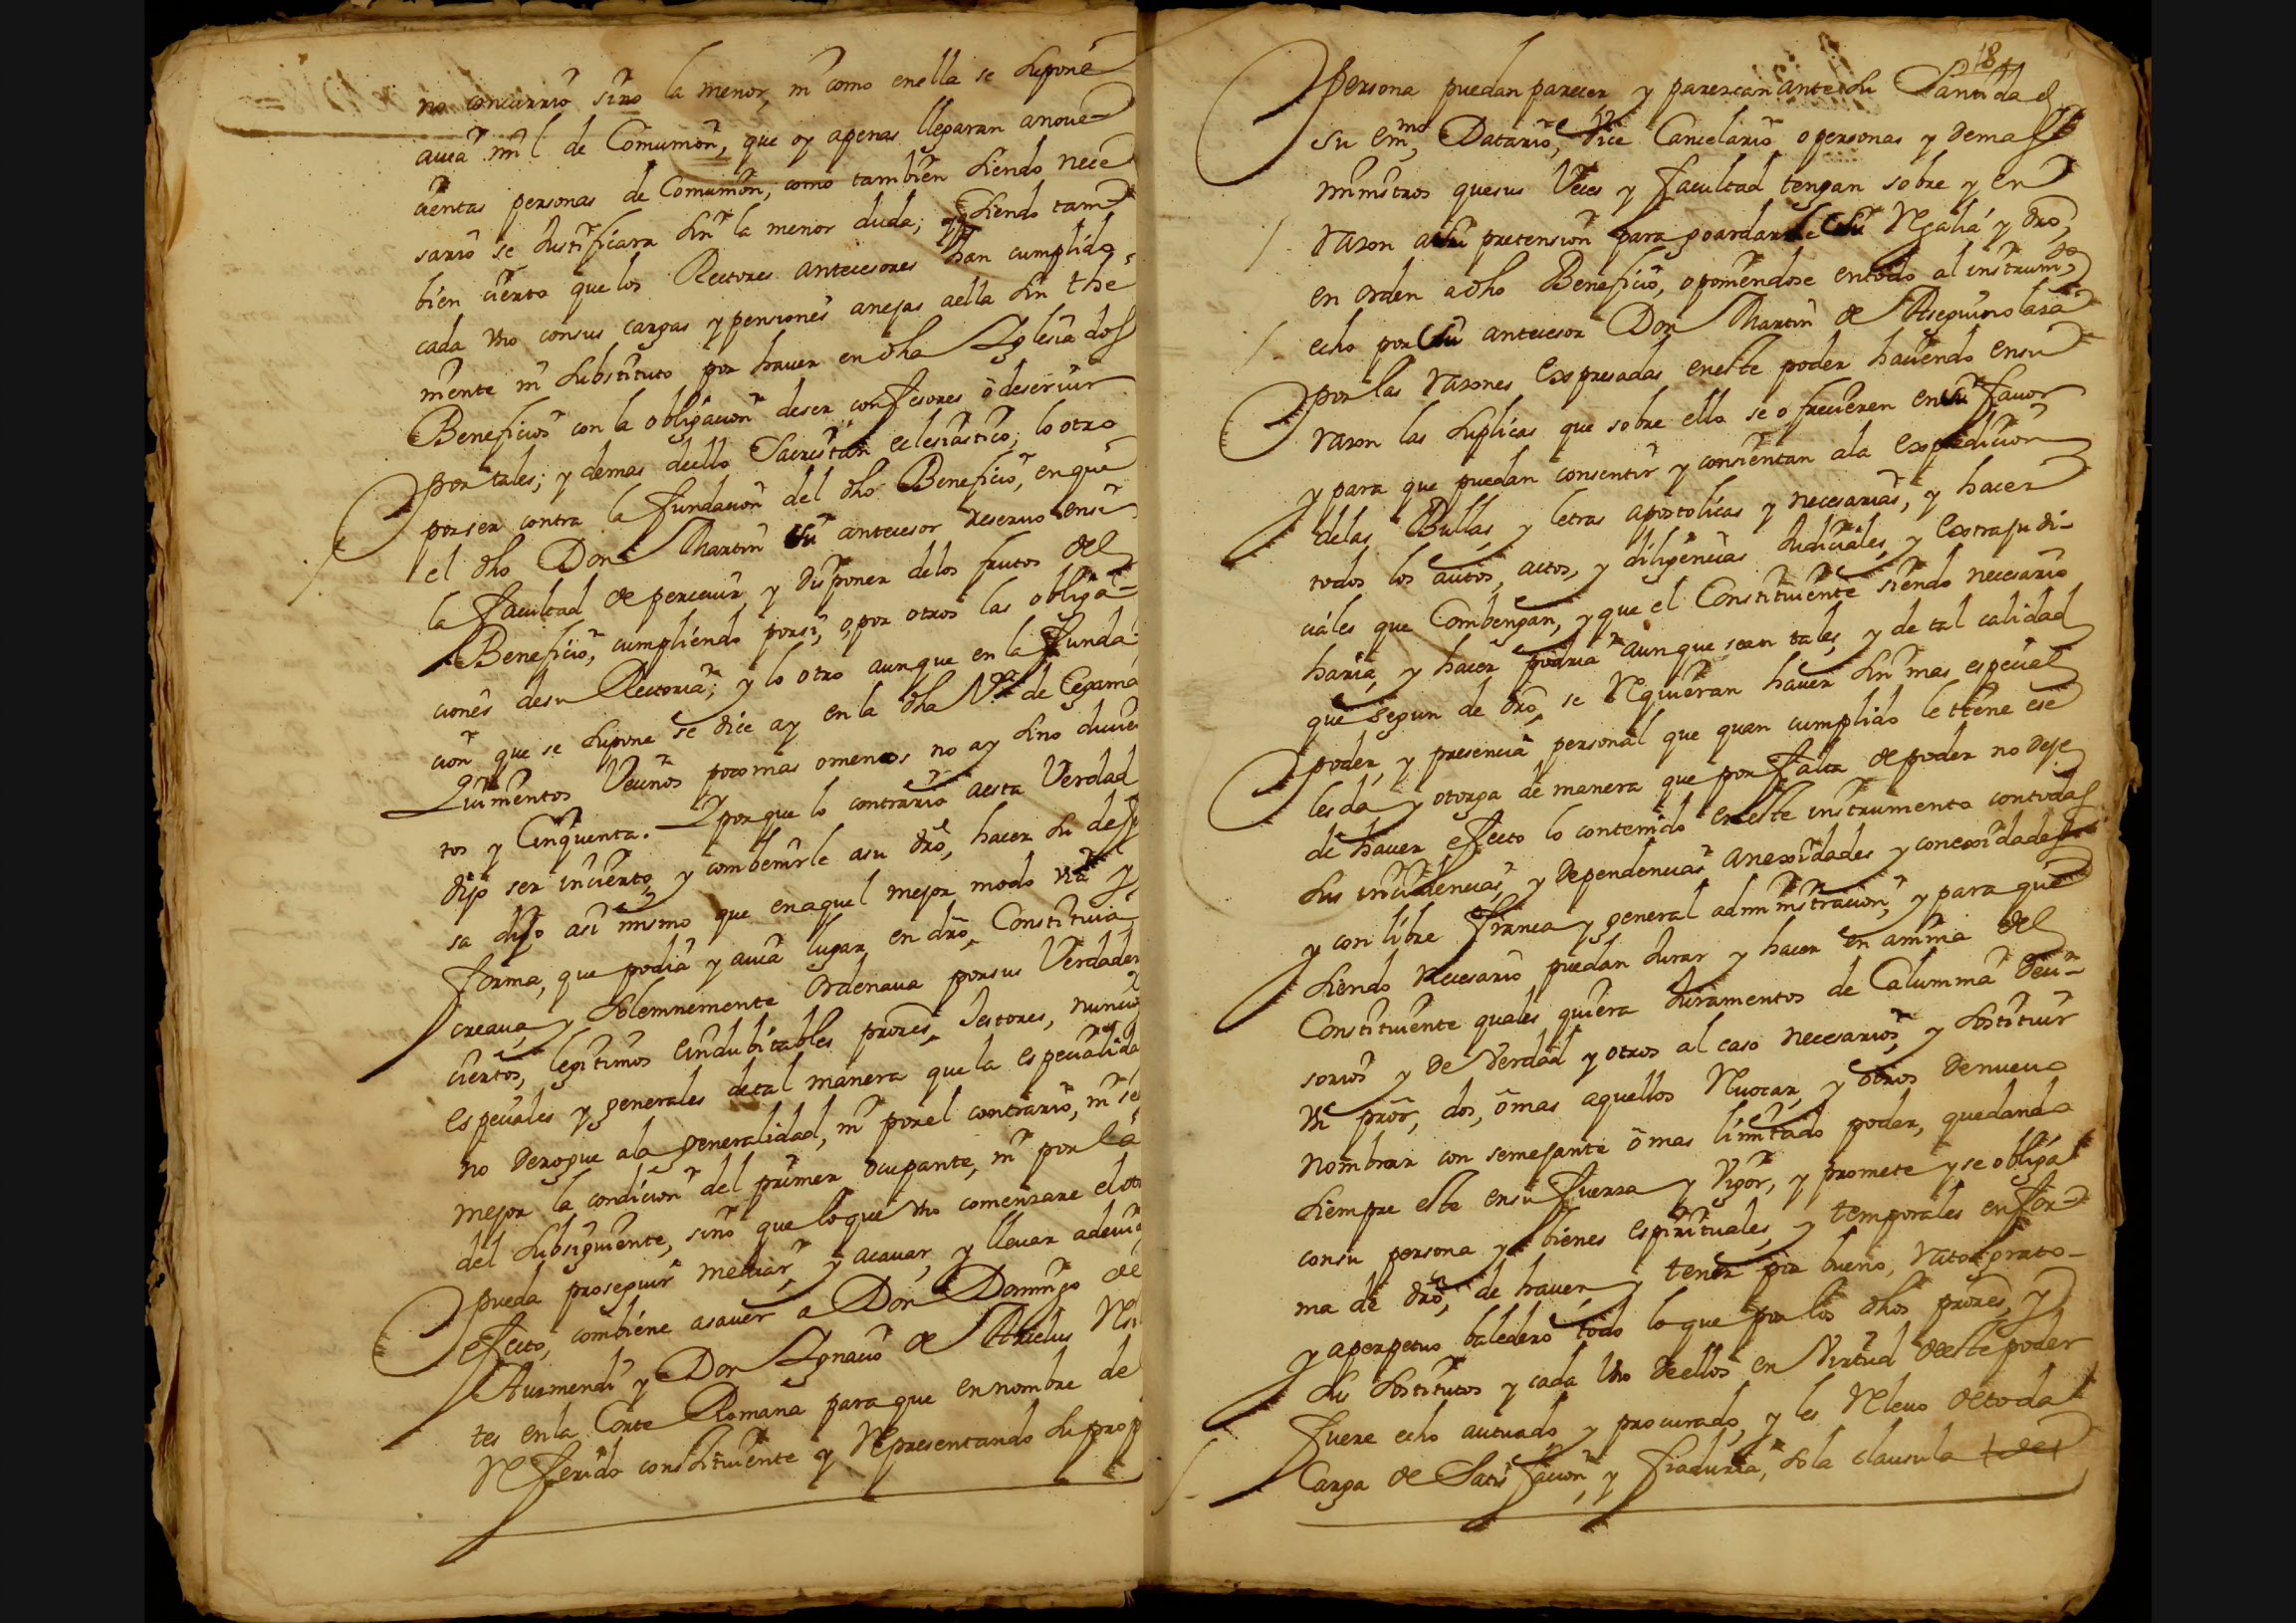 no concurrio sino la menor, ni como en ella se supone
auia mil de Comunion, que oy apenas llegaran anoue-
cientas personas de Comunion; como tambien siendo nece
sario se Justificara sin la menor duda; y siendo tam-
bien cierto que los Rectores antecesores han cumplido
cada vno consus cargas y pensiones anejas aella sin the
niente ni substituto por hauer en dha Iglesia dos
Beneficios con la obligacion deser confesores o deseruir
por tales; y demas dello Sacristan eclesiastico; lo otro
por ser contra la fundacion del dho Beneficio, en que
el dho Don Martin su antecesor reseruo ensi
la facultad de perceuir y disponer delos frutos del
Beneficio, cumpliendo porsi, o por otros las obliga-
ciones desu Rectoria; y lo otro aunque en la funda-
cion que se supone se dice ay en la dha Va de Cegama
Quinientos Vecinos poco mas omenos no ay sino ducien
tos y Cinquenta. Y porque lo contrario aesta Verdad
dijo ser incierto y combenirle asu dro, hacer su defen
sa dijo asi mismo que enaquel mejor modo via y
forma, que podia y auia lugar en dro, Constituia
creaua y solemnemente ordenaua porsus Verdader
ciertos, legitimos eindubitables prores, Jestores, nuncio
especiales y generales detal manera que la especialida
no derogue ala generalidad, ni porel contrario, ni se
mejor la condicion del primer ocupante, ni por la
del subsiguiente, sino que loque vno comenzare el otr
pueda proseguir mediar y acauar, y lleuar adeuid
efecto, combiene asauer a Don Domingo de
Aurmendi y Don Ignacio de
tes en la Corte Romana para que en nombre de
Referido constituiente y Representando su prop
18
persona puedan parecer y parezcan ante su Santidad
su emmo, Datario, Vice Cancelario o personas y demas
ministros quesus Veces y facultad tengan sobre y en
razon asu pretension para goardarle su Regalia y dro,
en orden adho Beneficio, oponiendose entodo al instrumto
echo por su antecesor Don Martin de
por las razones expresadas eneste poder haciendo ensu
razon las suplicas que sobre ello se ofrecieren ensu fauor
y para que puedan consentir y consientan ala Expedicion
delas Bullas, y letras apostolicas y necesarias, y hacer
todos los autos, actos, y diligencias Judiciales, y Extrajudi-
ciales que Combengan, y que el Constituiente siendo necesario
haria, y hacer podria aunque sean tales, y de tal calidad
que segun de dro, se Requieran hauer sin mas especial
poder, y presencia personal que quan cumplido le tiene ese
les da y otorga de manera que por falta de poder no deje
de hauer efecto lo contenido eneste instrumento contodas
sus incidencias, y dependencias anexidades y conexidades
y con libre franca y general administracion, y para que
siendo necesario puedan Jurar y hacer en anima del
Constituiente quales quiera Juramentos de Calumnia deci-
sorios y de Verdad y otros al caso necesarios, y sostituir
vn pror, dos, o mas aquellos Reuocar, y otros denueuo
nombrar con semejante o mas limitado poder, quedando
siempre este ensu fuerza y Vigor, y promete y se obliga
consu persona y bienes espirituales, y temporales en for-
ma de dro, de hauer y tener por bueno, rato y grato-
y aperpetuo baledero todo lo que por los dhos prores, y
sus sostitutos y cada Vno deellos en Virtud deeste poder
fuere echo autuado, y procurado, y les Releuo detoda
Carga de Satisfacion, y fiaduria, so la clausula